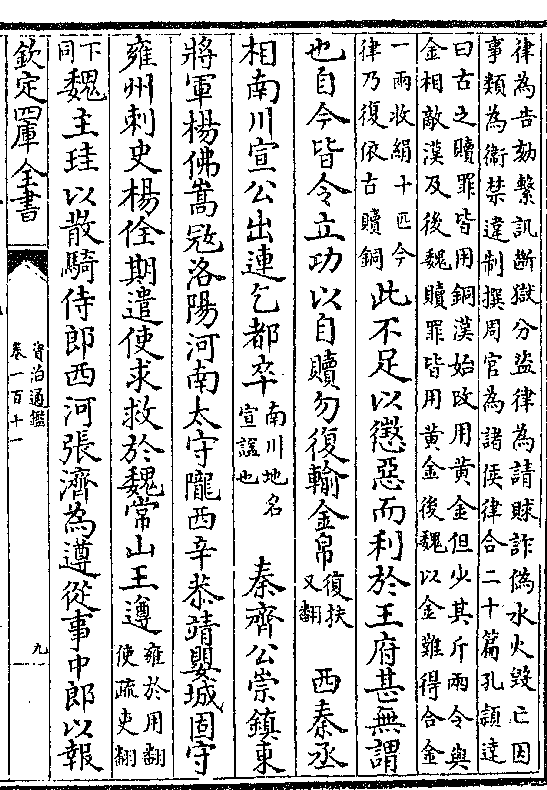 律為告劾繫訊斷獄分盜律為請賕詐偽水火毀亡因
事類為衛禁違制撰周官為諸侯律合二十篇孔頴達
曰古之贖罪皆用銅漢始改用黄金但少其斤兩令與
金相敵漢及後魏贖罪皆用黄金後魏以金難得合金
一兩收絹十匹今
律乃復依古贖銅
此不足以懲惡而利於王府甚無謂
也自今皆令立功以自贖勿復輸金帛
復扶
又翻
西秦丞
相南川宣公出連乞都卒
南川地名
宣謚也
秦齊公崇鎮東
將軍楊佛嵩冦洛陽河南太守隴西辛恭靖嬰城固守
雍州刺史楊佺期遣使求救於魏常山王遵
雍於用翻
使疏吏翻
下
同
魏主珪以散騎侍郎西河張濟為遵從事中郎以報
欽定四庫全書
資治通鑑
卷一百十一
九